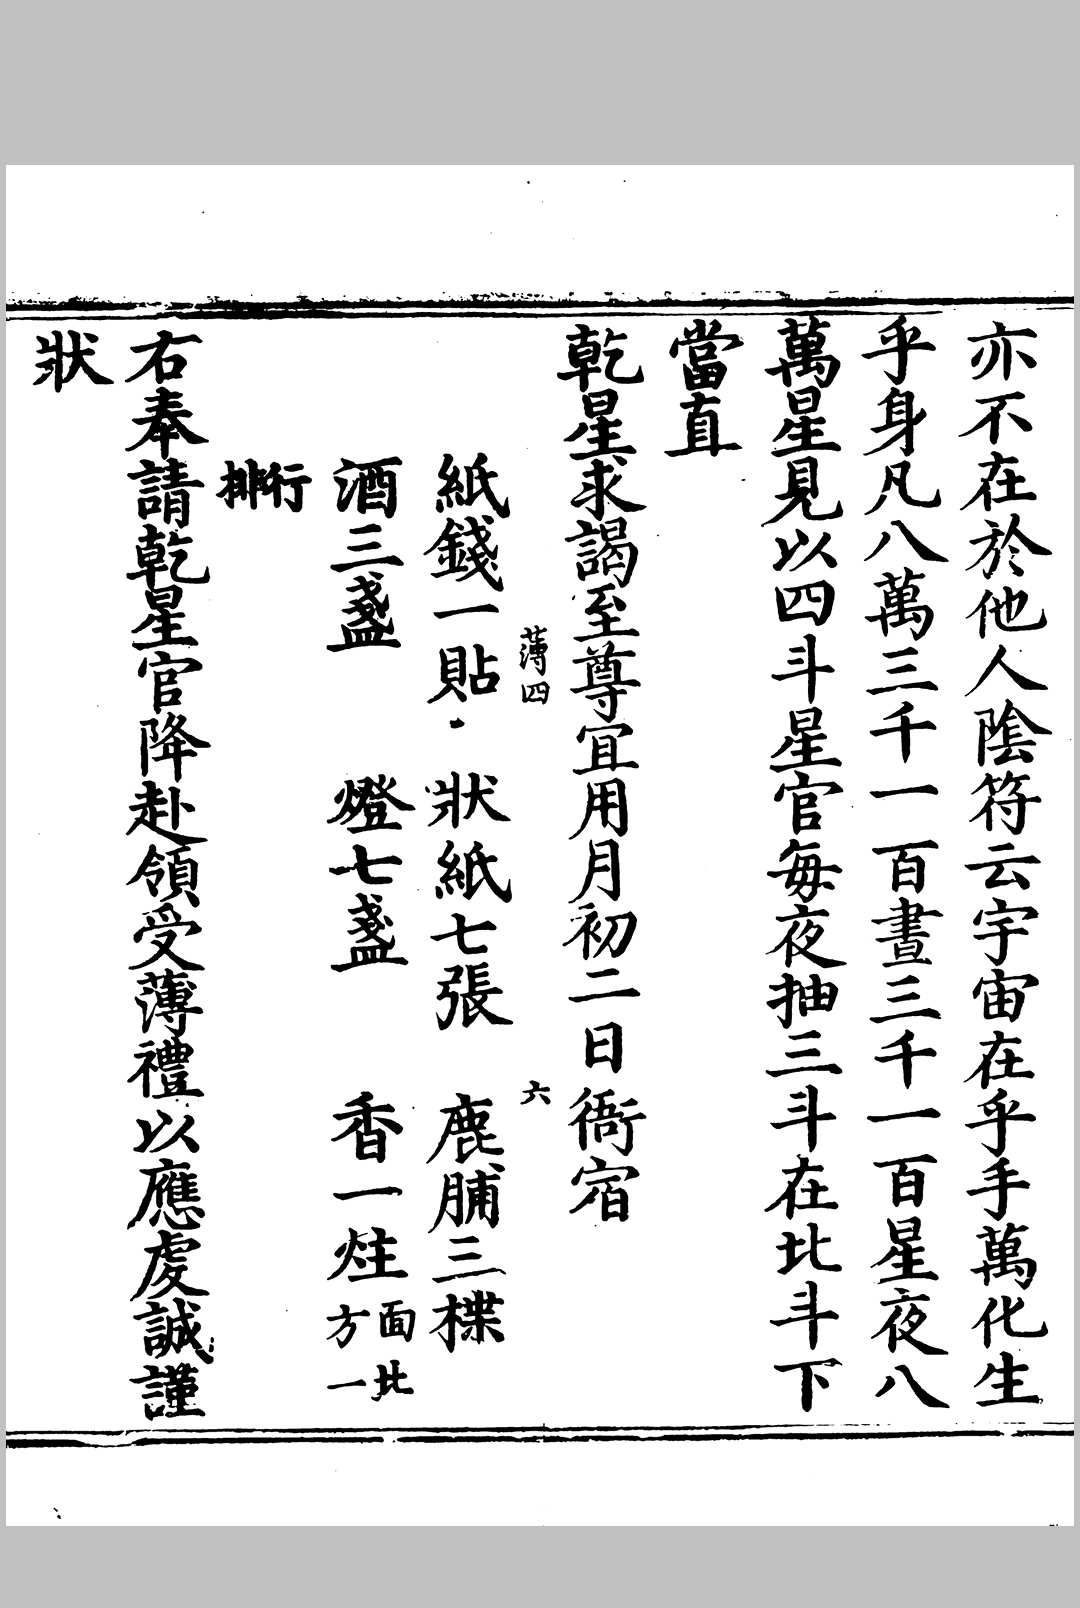 亦不在於他人陰符云宇宙在乎手萬化生
乎身凡八萬三千一百晝三千一百星夜八
萬星見以四斗星官每夜抽三斗在北斗下
當直
乾星求謁至尊宜用月初二日衙宿
薄四
六
紙錢一貼 狀紙七張 鹿脯三楪
酒三盞 燈七盞 香一炷面北方一
排行
右奉請乾星官降赴領受薄禮以應虔誠謹
狀